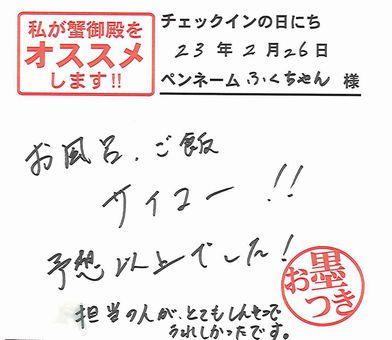 私が蟹御殿を
オススメ
します!!
チェックインの日にち
23年2月26日
ペンネーム ふくちゃん 様
お風呂、ご飯
サイコー!!
予想以上でした!
お墨つき
担当の人が、とてもしんせつで
うれしかったです。